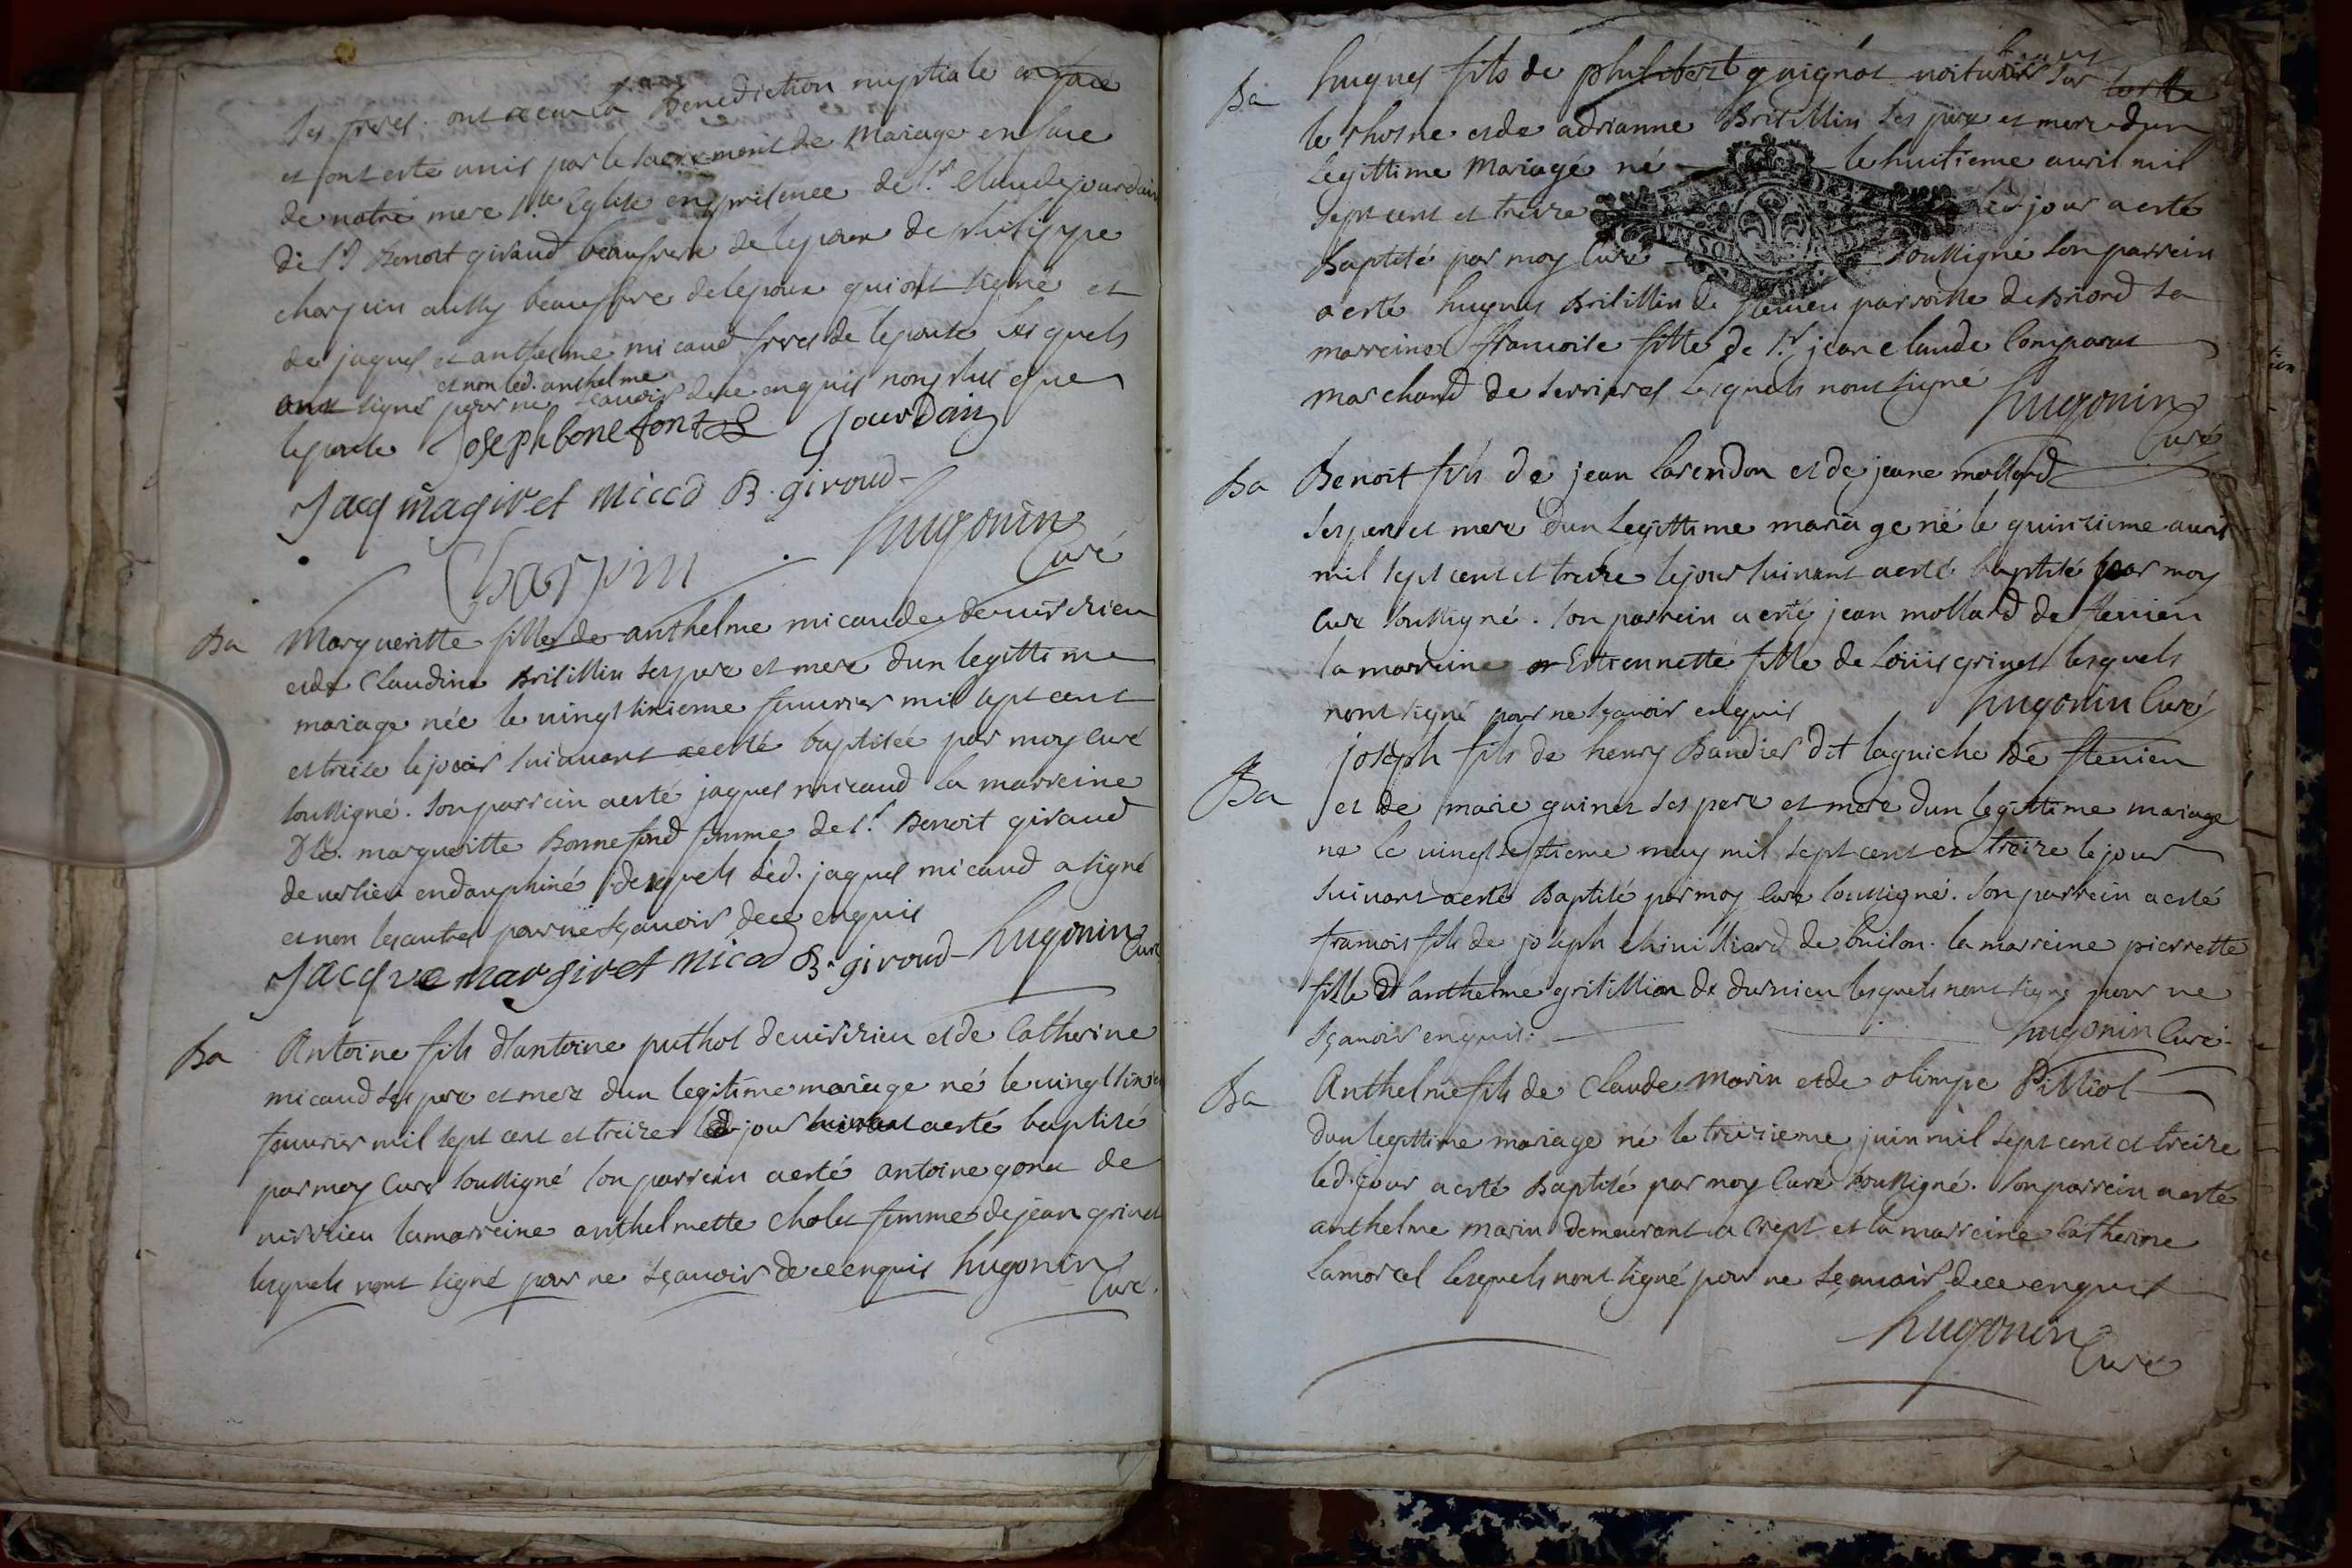 ses freres. ont receu la Benediction nuptiale en face
et ont esté unis par le sacrement de Mariage en face
de notre mere Ste Eglise en presence de Sr. Claude jourdain
de Sr Benoit giraud beaufrere de lepoux de philippe
charpin aussy beaufrere delepoux qui ont signé et
de jaques et anthelme micaud freres de lepouse lesquels
et non led. anthelme
ont signé pour ne sçavoir dece enquis non plus que
lepouse Joseph bonefont Jourdain
Jacq magiret miccd B. giroud
Charpin hugonin
Curé
Ba Margueritte fille de anthelme micaud de virzieu
et de Claudine Brisillin ses pere et mere dun legittime
mariage née le vingt sixieme feuurier mil sept cent
et treize le jour suiuant a esté baptisée par moy Curé
soussigné. son parrein a esté jaques micaud la marreine
Dlle. margueritte Bonnefond femme de Sr. Benoit giraud
de en dauphiné desquels led. jaques micaud a signé
et non les autres pour ne sçavoir dece enquis
Jacque margiret micod B. giroud hugonin Curé
Ba Antoine fils d'antoine puthot de virzieu et de Catherine
micaud ses pere et mere dun legitime mariage né le vingt
feuurier mil sept cent et treize led jour suivant a esté baptisé
par moy Curé soussigné son parrein a esté antoine gonu de
virzieu la marreine anthelmette cholet femme de jean grinet
lesquels nont signé pour ne sçavoir de ce enquis hugonin
Curé.
Ba hugues fils de philibert guignot voiturier sur
le rhosne et de adrianne Brisillin ses pere et mere dun
Legittime Mariagé né le huitieme auril mil
sept cent et treize led jour a esté
Baptisé par moy Curé soussigné son parrein
a esté hugues Brisillin de flevieu parroisse de Briord sa
marreine francoise fille de Sr jean claude Comparat
marchand de serrieres lesquels nont signé hugonin
Curé
Ba Benoit fils de jean Carendon et de jeane mollard
ses pere et mere dun Legittime mariage né le quinzieme auril
mil sept cent et treize le jour suivant a esté baptisé par moy
Curé soussigné. son parrein a esté jean mollard de flevieu
la marreine Estiennette fille de Loüis grinet lesquels
nont signé pour ne sçavoir enquis hugonin Curé
Ba joseph fils de henry Baudier dit laguiche de flevieu
et de marie guinet ses pere et mere dun legittime mariage
né le vingt septieme may mil sept cent et treize le jour
suivant a esté Baptisé par moy Curé soussigné. son parrein a esté
francois fils de joseph chinilliard de buison. la marreine pierrette
fille d'anthelme grisillion de durnieu lesquels nont signé pour ne
sçavoir enquis: hugonin Curé
Ba Anthelme fils de Claude Marin et de olimpe Pilliol
dun legittime mariage né le treizieme juin mil sept cent et treize
led. jour a esté Baptisé par moy Curé soussigné. son parrein a esté
anthelme marin demeurant a Crept et la marreine Catherine
Lamorcel lesquels nont signé pour ne sçavoir dece enquis
hugonin
Curé